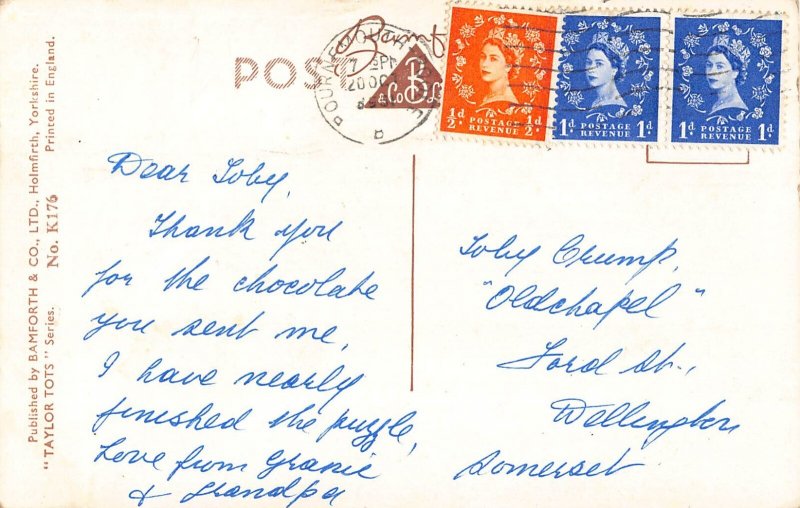 Published by BAMFORTH & CO., LTD., Holmfirth, Yorkshire.
"TAYLOR TOTS" Series.
No. K176
Printed in England.
POST
B
& Co Ld
7 - PM
20 OC
½d ½d
POSTAGE
REVENUE
1d 1d
POSTAGE
REVENUE
1d 1d
POSTAGE
REVENUE
Dear Toby,
Thank you
for the chocolate
you sent me,
I have nearly
finished the puzzle,
Love from Granie
& Grandpa
Toby Crump,
"Oldchapel"
Ford St.,
Wellington
Somerset